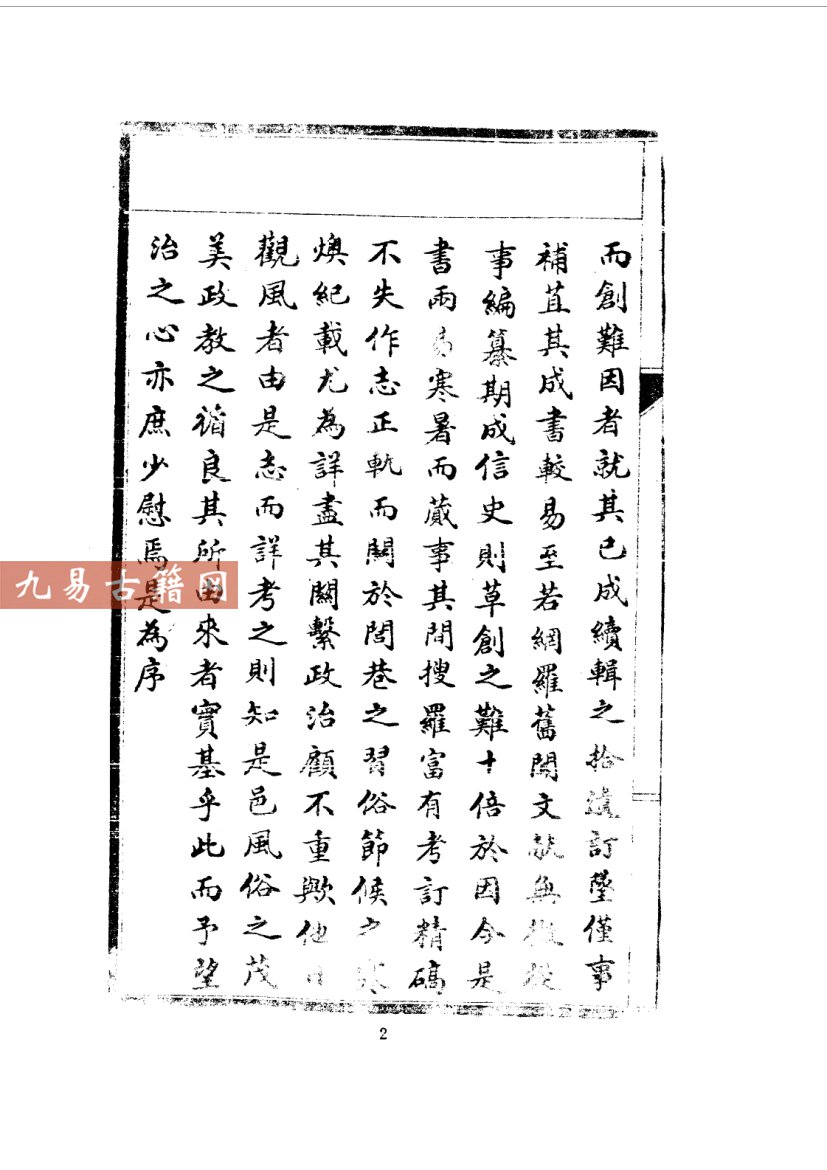 而創難因者就其已成續輯之拾遺訂墜僅事
補苴其成書較易至若網羅舊聞文獻無徵從
事編纂期成信史則草創之難十倍於因今是
書兩易寒暑而蕆事其間搜羅富有考訂精碻
不失作志正軌而關於閭巷之習俗節候之寒
燠紀載尤為詳盡其關繫政治顧不重歟他日
觀風者由是志而詳考之則知是邑風俗之茂
美政教之循良其所由來者實基乎此而予望
治之心亦庶少慰焉是為序
九易古籍网
2